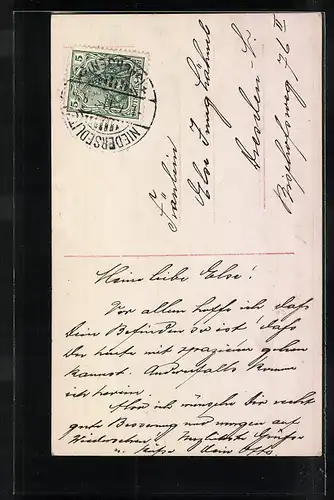 5
5
NIEDERSEDLITZ
Fräulein
Else Junghähnel
Dresden-F.
Bischofsweg 76 II
Meine liebe Else!
Vor allem hoffe ich daß
Dein Befinden so ist daß
Du heute mit spazieren gehen
kannst. Andernfalls komme
ich herein.
Also ich wünsche Dir recht
gute Besserung und morgen auf
Wiedersehen Grüße
u. Küsse Dein Otto